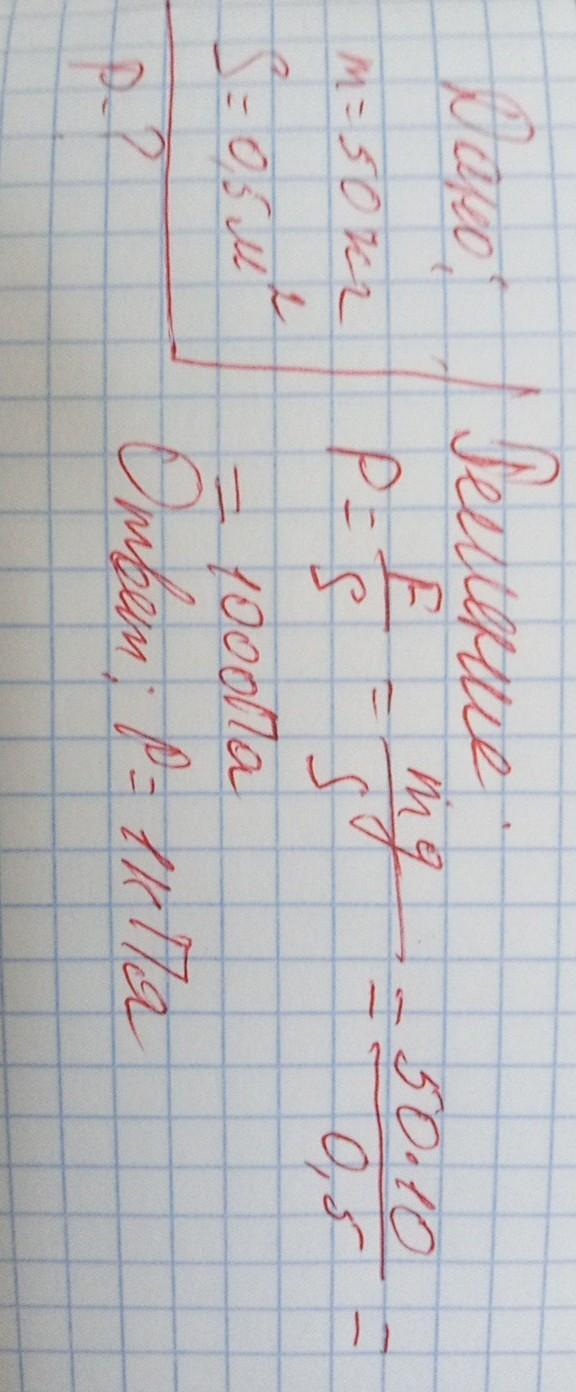 Дано:
m = 50 кг
S = 0,5 м²
p - ?
Решение
P = F/S = mg/S = 50·10/0,5 =
= 1000 Па
Ответ: P = 1 кПа